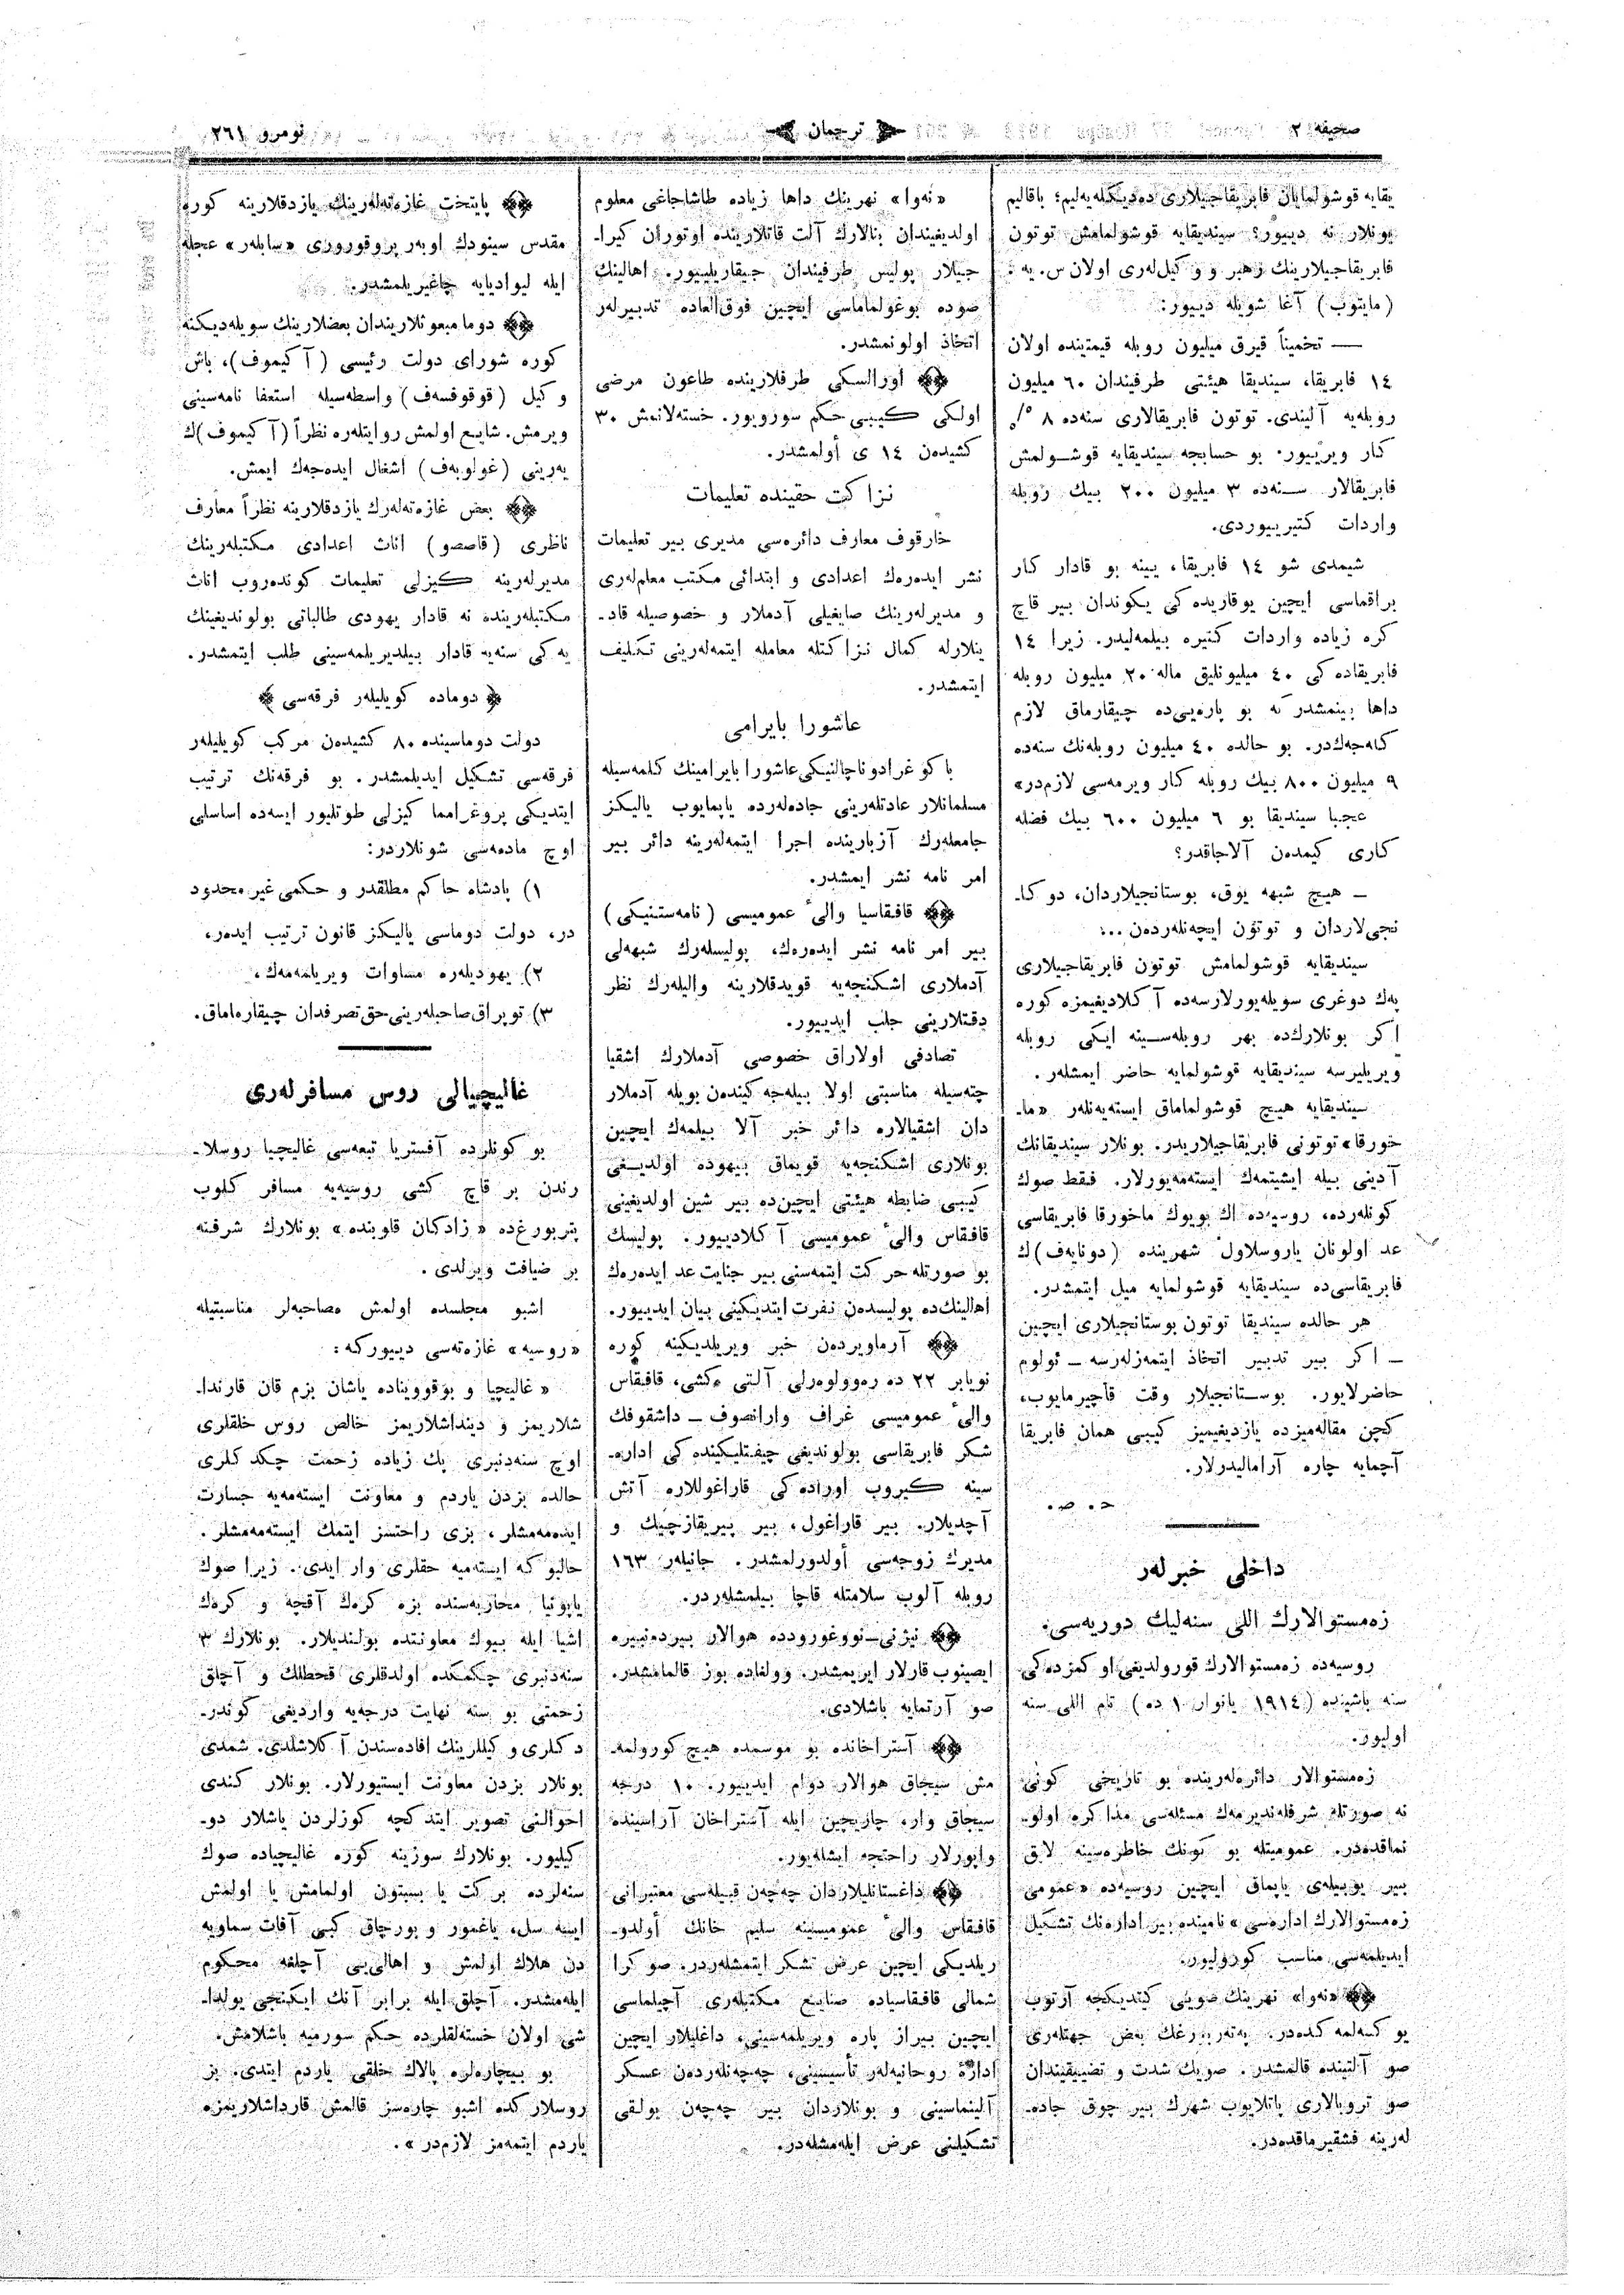 صحیفه ٢
ترجمان
نومرو ٢٦١
یقایه قوشولمایان فابریقاجیلاری ده‌دیکله‌یه‌لیم؛ باقالیم
بونلار نه دییور؟ سیندیقایه قوشولمامش توتون
فابریقاجیلارینك زهبر و وکیل‌لەری اولان س. یه .
(مایتوب) آغا شویله دییور:
— تخمیناً قیرق میلیون روبله قیمتینده اولان
١٤ فابریقا، سیندیقا هیئتی طرفیندان ٦٠ میلیون
روبله‌یه آلیندی. توتون فابریقالاری سنه‌ده ٨ ٪
کار ویرییور. بو حسابجه سیندیقایه قوشولمش
فابریقالار سنه‌ده ٣ میلیون ٢٠٠ بیك روبله
واردات کتیرییوردی.
شیمدی شو ١٤ فابریقا، یینه بو قادار کار
براقماسی ایچین یوقاریده‌کی یکوندان بیر قاچ
کره زیاده واردات کتیره بیلمه‌لیدر. زیرا ١٤
فابریقاده‌کی ٤٠ میلیونلیق ماله ٢٠ میلیون روبله
داها بینمشدر که بو پاره‌یی‌ده چیقارماق لازم
کله‌جه‌كدر. بو حالده ٤٠ میلیون روبله‌نك سنه‌ده
٩ میلیون ٨٠٠ بیك روبله کار ویرمه‌سی لازم‌در»
عجبا سیندیقا بو ٦ میلیون ٦٠٠ بیك فضله
کاری کیمدەن آلاجاقدر؟
ـ هیچ شبهه یوق، بوستانجیلاردان، دوکا-
نجی‌لاردان و توتون ایچه‌نله‌ردەن ...
سیندیقایه قوشولمامش توتون فابریقاجیلاری
پەك دوغری سویله‌یورلارسه‌ده آکلادیغیمزه کوره
اکر بونلارك‌ده بهر روبله‌سینه ایکی روبله
ویریلیرسه سیندیقایه قوشولمایه حاضر ایمشله‌ر.
سیندیقایه هیچ قوشولماماق ایسته‌یه‌نله‌ر «ما-
خورقا» توتونی فابریقاجیلاریدر. بونلار سیندیقانك
آدینی بیله ایشیتمه‌ك ایسته‌مه‌یورلار. فقط صوك
کونله‌رده، روسیه‌ده اك بویوك ماخورقا فابریقاسی
عد اولونان یاروسلاول شهرینده (دونایەف)ك
فابریقاسی‌ده سیندیقایه قوشولمایه میل ایتمشدر.
هر حالده سیندیقا توتون بوستانجیلاری ایچین
ـ اکر بیر تدبیر اتخاذ ایتمه‌زله‌رسه ـ ئولوم
حاضرلایور. بوستانجیلار وقت قاچیرمایوب،
کچن مقاله‌میزده یازدیغیمیز کیبی همان فابریقا
آچمایه چاره آرامالیدرلار.
ح. ص.
داخلی خبرلەر
زه‌مستوالارك اللی سنه‌لیك دوریه‌سی.
روسیه‌ده زه‌مستوالارك قورولدیغی اوکمزده‌کی
سنه باشینده (١٩١٤ یانوار ١ ده) تام اللی سنه
اولیور.
زه‌مستوالار دائره‌له‌رینده بو تاریخی کونی
نه صورتله شرفله‌ندیرمه‌ك مسئله‌سی مذاکره اولو-
نماقده‌در. عمومیتله بو کونك خاطره‌سینه لایق
بیر یوبیله‌ی یاپماق ایچین روسیه‌ده «عمومی
زه‌مستوالارك اداره‌سی» نامینده بیر اداره‌نك تشکیل
ایدیلمه‌سی مناسب کورولیور.
«نه‌وا» نهرینك صویی کیتدیکجه آرتوب
یوکسه‌لمه‌کده‌در. پەته‌ربورغك بعض جهتله‌ری
صو آلتینده قالمشدر. صویك شدت و تضییقیندان
صو تروبالاری پاتلایوب شهرك بیر چوق جاده-
له‌رینه فشقیرماقده‌در.
«نه‌وا» نهرینك داها زیاده طاشاجاغی معلوم
اولدیغیندان بنالارك آلت قاتلارینده اوتوران کیرا-
جیلار پولیس طرفیندان چیقاریلییور. اهالینك
صوده بوغولماماسی ایچین فوق‌العاده تدبیرله‌ر
اتخاذ اولونمشدر.
اورالسکی طرفلارینده طاعون مرضی
اولکی کیبی حکم سورویور. خسته‌لانمش ٣٠
کشیده‌ن ١٤ ی أولمشدر.
نزاکت حقینده تعلیمات
خارقوف معارف دائره‌سی مدیری بیر تعلیمات
نشر ایده‌ره‌ك اعدادی و ابتدائی مکتب معلم‌له‌ری
و مدیرله‌رینك صایغیلی آدملار و خصوصیله قاد-
ینلارله کمال نزاکتله معامله ایتمه‌له‌رینی تکلیف
ایتمشدر.
عاشورا بایرامی
باکو غرادوناچالنیکی عاشورا بایرامینك کلمه‌سیله
مسلمانلار عادتله‌رینی جاده‌له‌رده یاپمایوب یالیکز
جامعله‌رك آزبارینده اجرا ایتمه‌له‌رینه دائر بیر
امر نامه نشر ایمشدر.
قافقاسیا والیٔ عمومیسی (نامه‌ستنیکی)
بیر امر نامه نشر ایده‌ره‌ك، پولیسله‌رك شبهه‌لی
آدملاری اشکنجه‌یه قویدقلارینه والیله‌رك نظر
دقتلارینی جلب ایدییور.
تصادفی اولاراق خصوصی آدملارك اشقیا
چته‌سیله مناسبتی اولا بیله‌جه‌کینده‌ن بویله آدملار
دان اشقیالاره دائر خبر آلا بیلمه‌ك ایچین
بونلاری اشکنجه‌یه قویماق بیهوده اولدیغی
کیبی ضابطه هیئتی ایچین‌ده بیر شین اولدیغینی
قافقاس والیٔ عمومیسی آکلادییور. پولیسك
بو صورتله حرکت ایتمه‌سنی بیر جنایت عد ایده‌ره‌ك
اهالینك‌ده پولیسده‌ن نفرت ایتدیکینی بیان ایدییور.
آرماویرده‌ن خبر ویریلدیکینه کوره
نویابر ٢٢ ده ره‌وولوه‌رلی آلتی کشی، قافقاس
والیٔ عمومیسی غراف وارانصوف ـ داشقوفك
شکر فابریقاسی بولوندیغی چیفتلیکینده‌کی اداره-
سینه کیروب اوراده‌کی قاراغوللاره آتش
آچدیلار. بیر قاراغول، بیر پیریقازچیك و
مدیرك زوجه‌سی أولدورلمشدر. جانیله‌ر ١٦٣
روبله آلوب سلامتله قاچا بیلمشله‌ردر.
نیژنی‌ـنووغورودده هوالار بیردەنبیره
ایصینوب قارلار ایریمشدر. وولغاده بوز قالمامشدر.
صو آرتمایه باشلادی.
آستراخانده بو موسمده هیچ کورولمه-
مش سیجاق هوالار دوام ایدییور. ١٠ درجه
سیجاق وار، چاریچین ایله آستراخان آراسینده
واپورلار راحتجه ایشله‌یور.
داغستانلیلاردان چەچەن قبیله‌سی معتبرانی
قافقاس والیٔ عمومیسینه سلیم خانك أولدو-
ریلدیکی ایچین عرض تشکر ایتمشله‌ردر. صوکرا
شمالی قافقاسیاده صنایع مکتبله‌ری آچیلماسی
ایچین بیراز پاره ویریلمه‌سینی، داغلیلار ایچین
ادارهٔ روحانیه‌له‌ر تأسیسینی، چه‌چه‌نله‌رده‌ن عسکر
آلینماسینی و بونلاردان بیر چه‌چه‌ن پولقی
تشکیلنی عرض ایله‌مشله‌در.
پایتخت غازه‌ته‌له‌رینك یازدقلارینه کوره
مقدس سینودك اوبه‌ر پروقوروری «سابله‌ر» عجله
ایله لیوادیایه چاغیریلمشدر.
دوما مبعوثلاریندان بعضلارینك سویله‌دیکنه
کوره شورای دولت رئیسی (آکیموف)، باش
وکیل (قوقوفسه‌ف) واسطه‌سیله استعفا نامه‌سینی
ویرمش. شایع اولمش روایتله‌ره نظراً (آکیموف)ك
یه‌رینی (غولوبه‌ف) اشغال ایده‌جه‌ك ایمش.
بعض غازه‌ته‌له‌رك یازدقلارینه نظراً معارف
ناظری (قاصصو) اناث اعدادی مکتبله‌رینك
مدیرله‌رینه کیزلی تعلیمات کونده‌روب اناث
مکتبله‌رینده نه قادار یهودی طالباتی بولوندیغینك
یه‌کی سنه‌یه قادار بیلدیریلمه‌سینی طلب ایتمشدر.
دوماده کویلیله‌ر فرقه‌سی
دولت دوماسینده ٨٠ کشیده‌ن مرکب کویلیله‌ر
فرقه‌سی تشکیل ایدیلمشدر. بو فرقه‌نك ترتیب
ایتدیکی پروغرامما کیزلی طوتلیور ایسه‌ده اساسلی
اوچ ماده‌سی شونلاردر:
١) پادشاه حاکم مطلقدر و حکمی غیر محدود
در، دولت دوماسی یالیکز قانون ترتیب ایده‌ر،
٢) یهودیله‌ره مساوات ویریلمه‌مه‌ك،
٣) توپراق صاحبله‌رینی حق تصرفدان چیقاره‌ماماق.
غالیچیالی روس مسافرلەری
بو کونلرده آفستریا تبعه‌سی غالیچیا روسلا-
رندن بر قاچ کشی روسیه‌یه مسافر کلوب
پتربورغ‌ده «زادکان قلوبنده» بونلارك شرفنه
بر ضیافت ویرلدی.
اشبو مجلسده اولمش مصاحبه‌لر مناسبتیله
«روسیه» غازه‌ته‌سی دییورکه:
«غالیچیا و بوقوویناده یاشان بزم قان قارندا-
شلاریمز و دینداشلاریمز خالص روس خلقلری
اوچ سنه‌دنبری پك زیاده زحمت چکدکلری
حالده بزدن یاردم و معاونت ایسته‌مه‌یه جسارت
ایده‌مه‌مشلر، بزی راحتسز ایتمك ایسته‌مه‌مشلر.
حالبوکه ایسته‌میه حقلری وار ایدی. زیرا صوك
یاپونیا محاربه‌سنده بزه کره‌ك آقچه و کره‌ك
اشیا ایله بیوك معاونتده بولندیلار. بونلارك ٣
سنه‌دنبری چکمکده اولدقلری قحطلك و آچلق
زحمتی بو سنه نهایت درجه‌یه واردیغی کوندر-
دکلری وکیللرینك افاده‌سندن آکلاشلدی. شمدی
بونلار بزدن معاونت ایستیورلار. بونلار کندی
احوالنی تصویر ایتدکچه کوزلردن یاشلار دو-
کیلیور. بونلارك سوزینه کوره غالیچیاده صوك
سنه‌لرده برکت یا بسبتون اولمامش یا اولمش
ایسه سل، یاغمور و بورچاق کبی آفات سماویه
دن هلاك اولمش و اهالی‌یی آچلغه محکوم
ایله‌مشدر. آچلق ایله برابر آنك ایکنجی یولدا-
شی اولان خسته‌لقلرده حکم سورمیه باشلامش.
بو بیچاره‌لره پالاك خلقی یاردم ایتدی. بز
روسلارکده اشبو چاره‌سز قالمش قارداشلاریمزه
یاردم ایتمه‌مز لازم‌در».